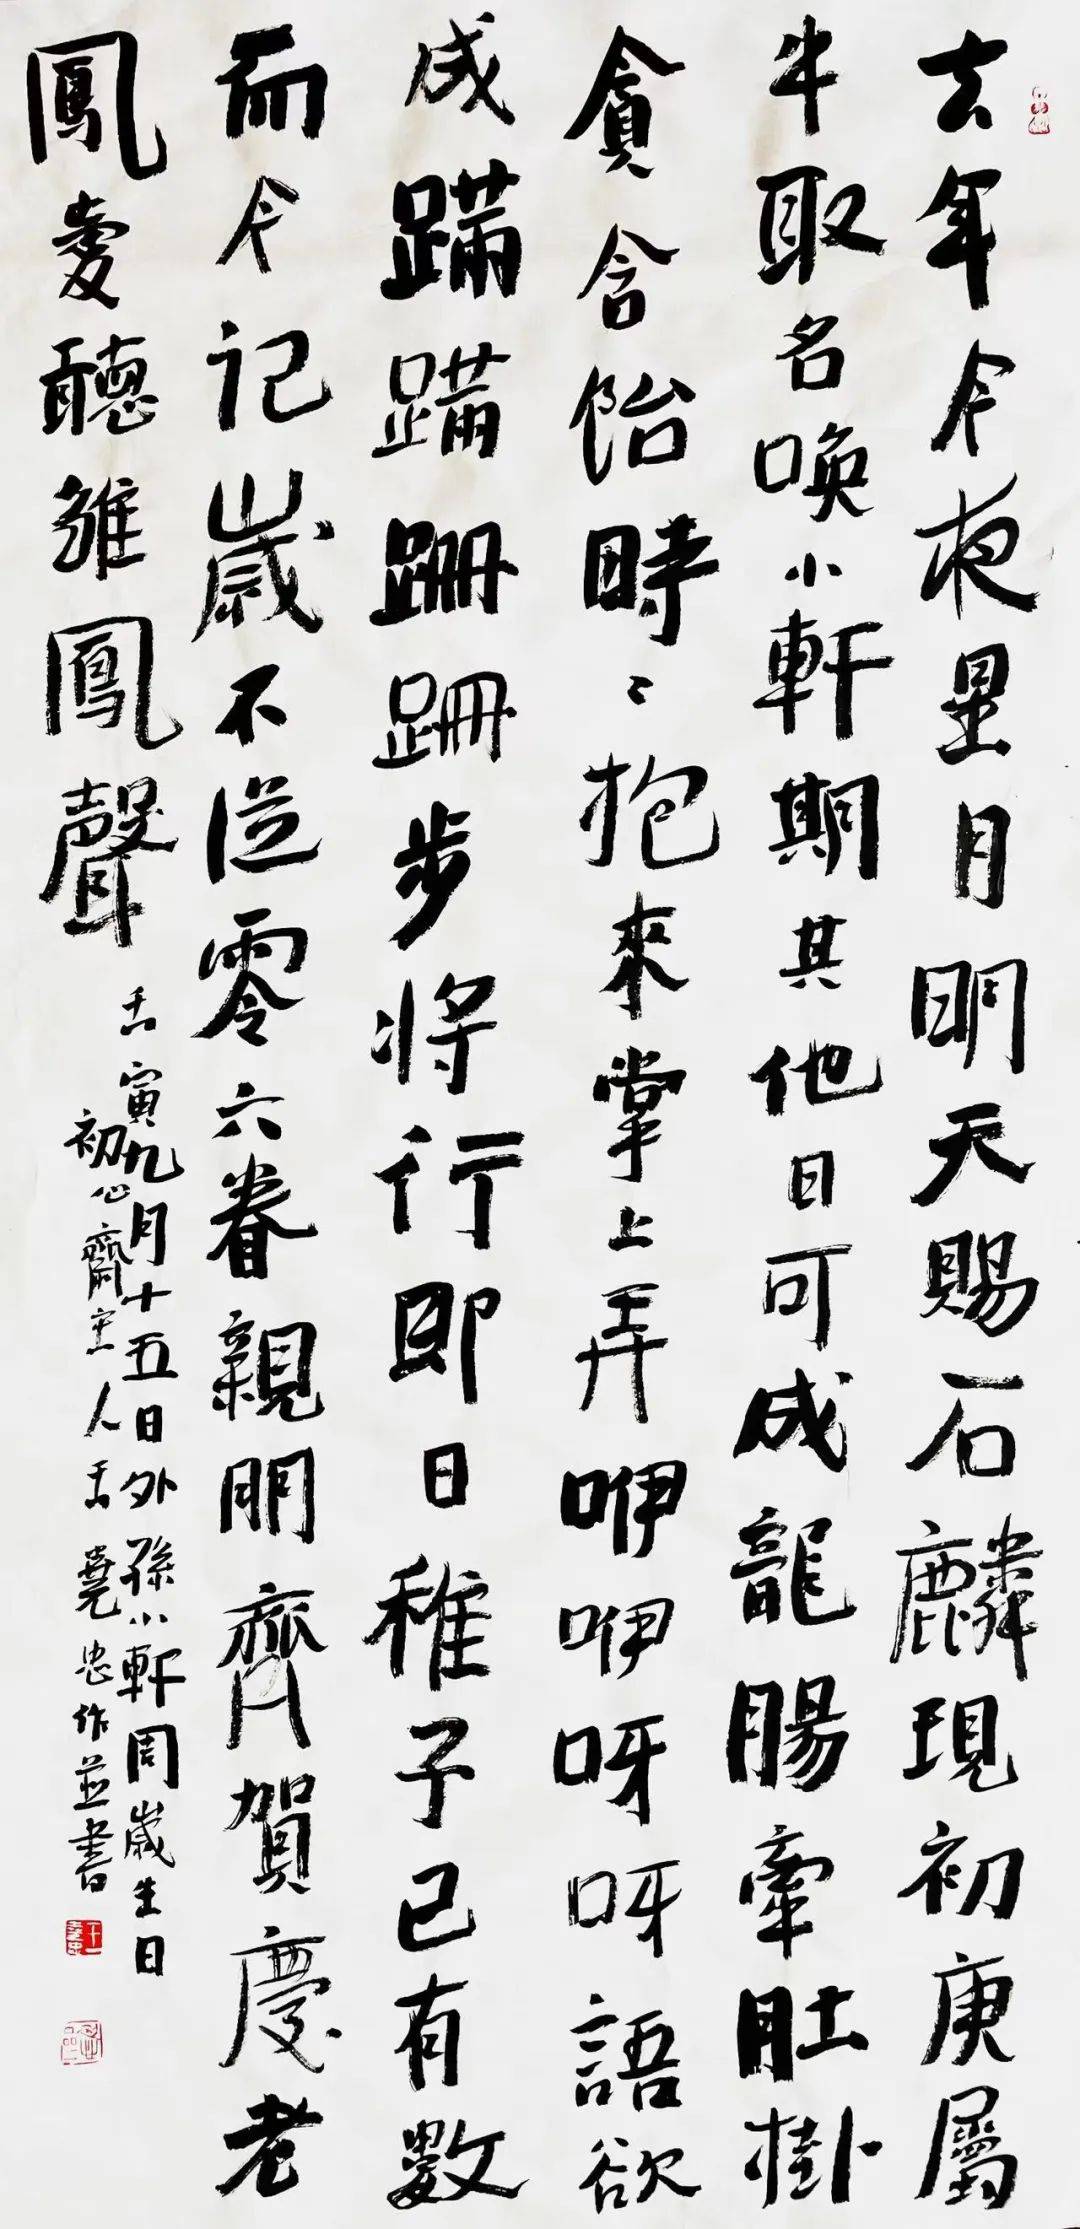 去年今夜星月明天賜石麟現初庚屬
牛取名喚小軒期其他日可成龍腸牽肚掛
貪含飴時〻抱來掌上弄咿咿呀呀語欲
成蹣蹣跚跚步將行即日稚子已有數
而今記歲不從零六眷親朋齊賀慶老
鳳愛聽雛鳳聲
壬寅九月十五日外孫小軒周歲生日
初心齋主人王堯忠作並書